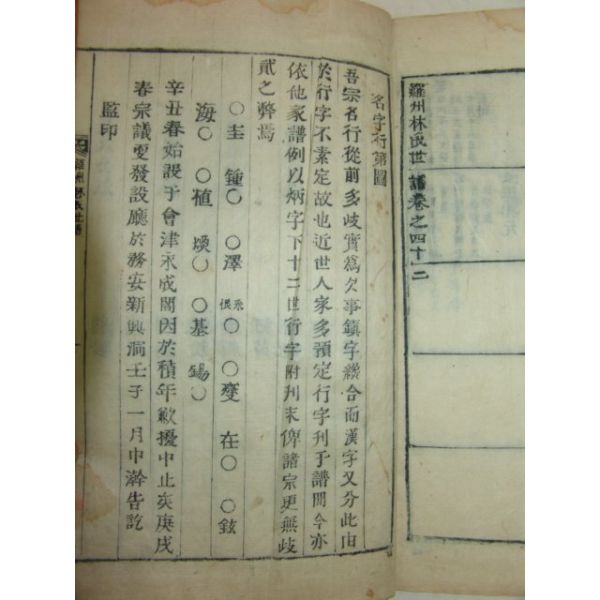 羅州林氏世譜卷之四十二
名字行第圖
吾宗名行從前多歧實爲欠事鎮字纔合而漢字又分此由
於行字不素定故也近世人家多預定行字刊于譜間今亦
依他家譜例以炳字下十二世行字附刊末俾諸宗更無歧
貳之弊焉
〇圭 鍾〇 〇澤 〇 〇燮 在〇 〇鉉
海〇 〇植 煥〇 〇基 錫〇
辛丑春始設于會津永成閣因於積年歉擾中止矣庚戌
春宗議更發設廳於務安新興洞壬子一月中澣告訖
監印